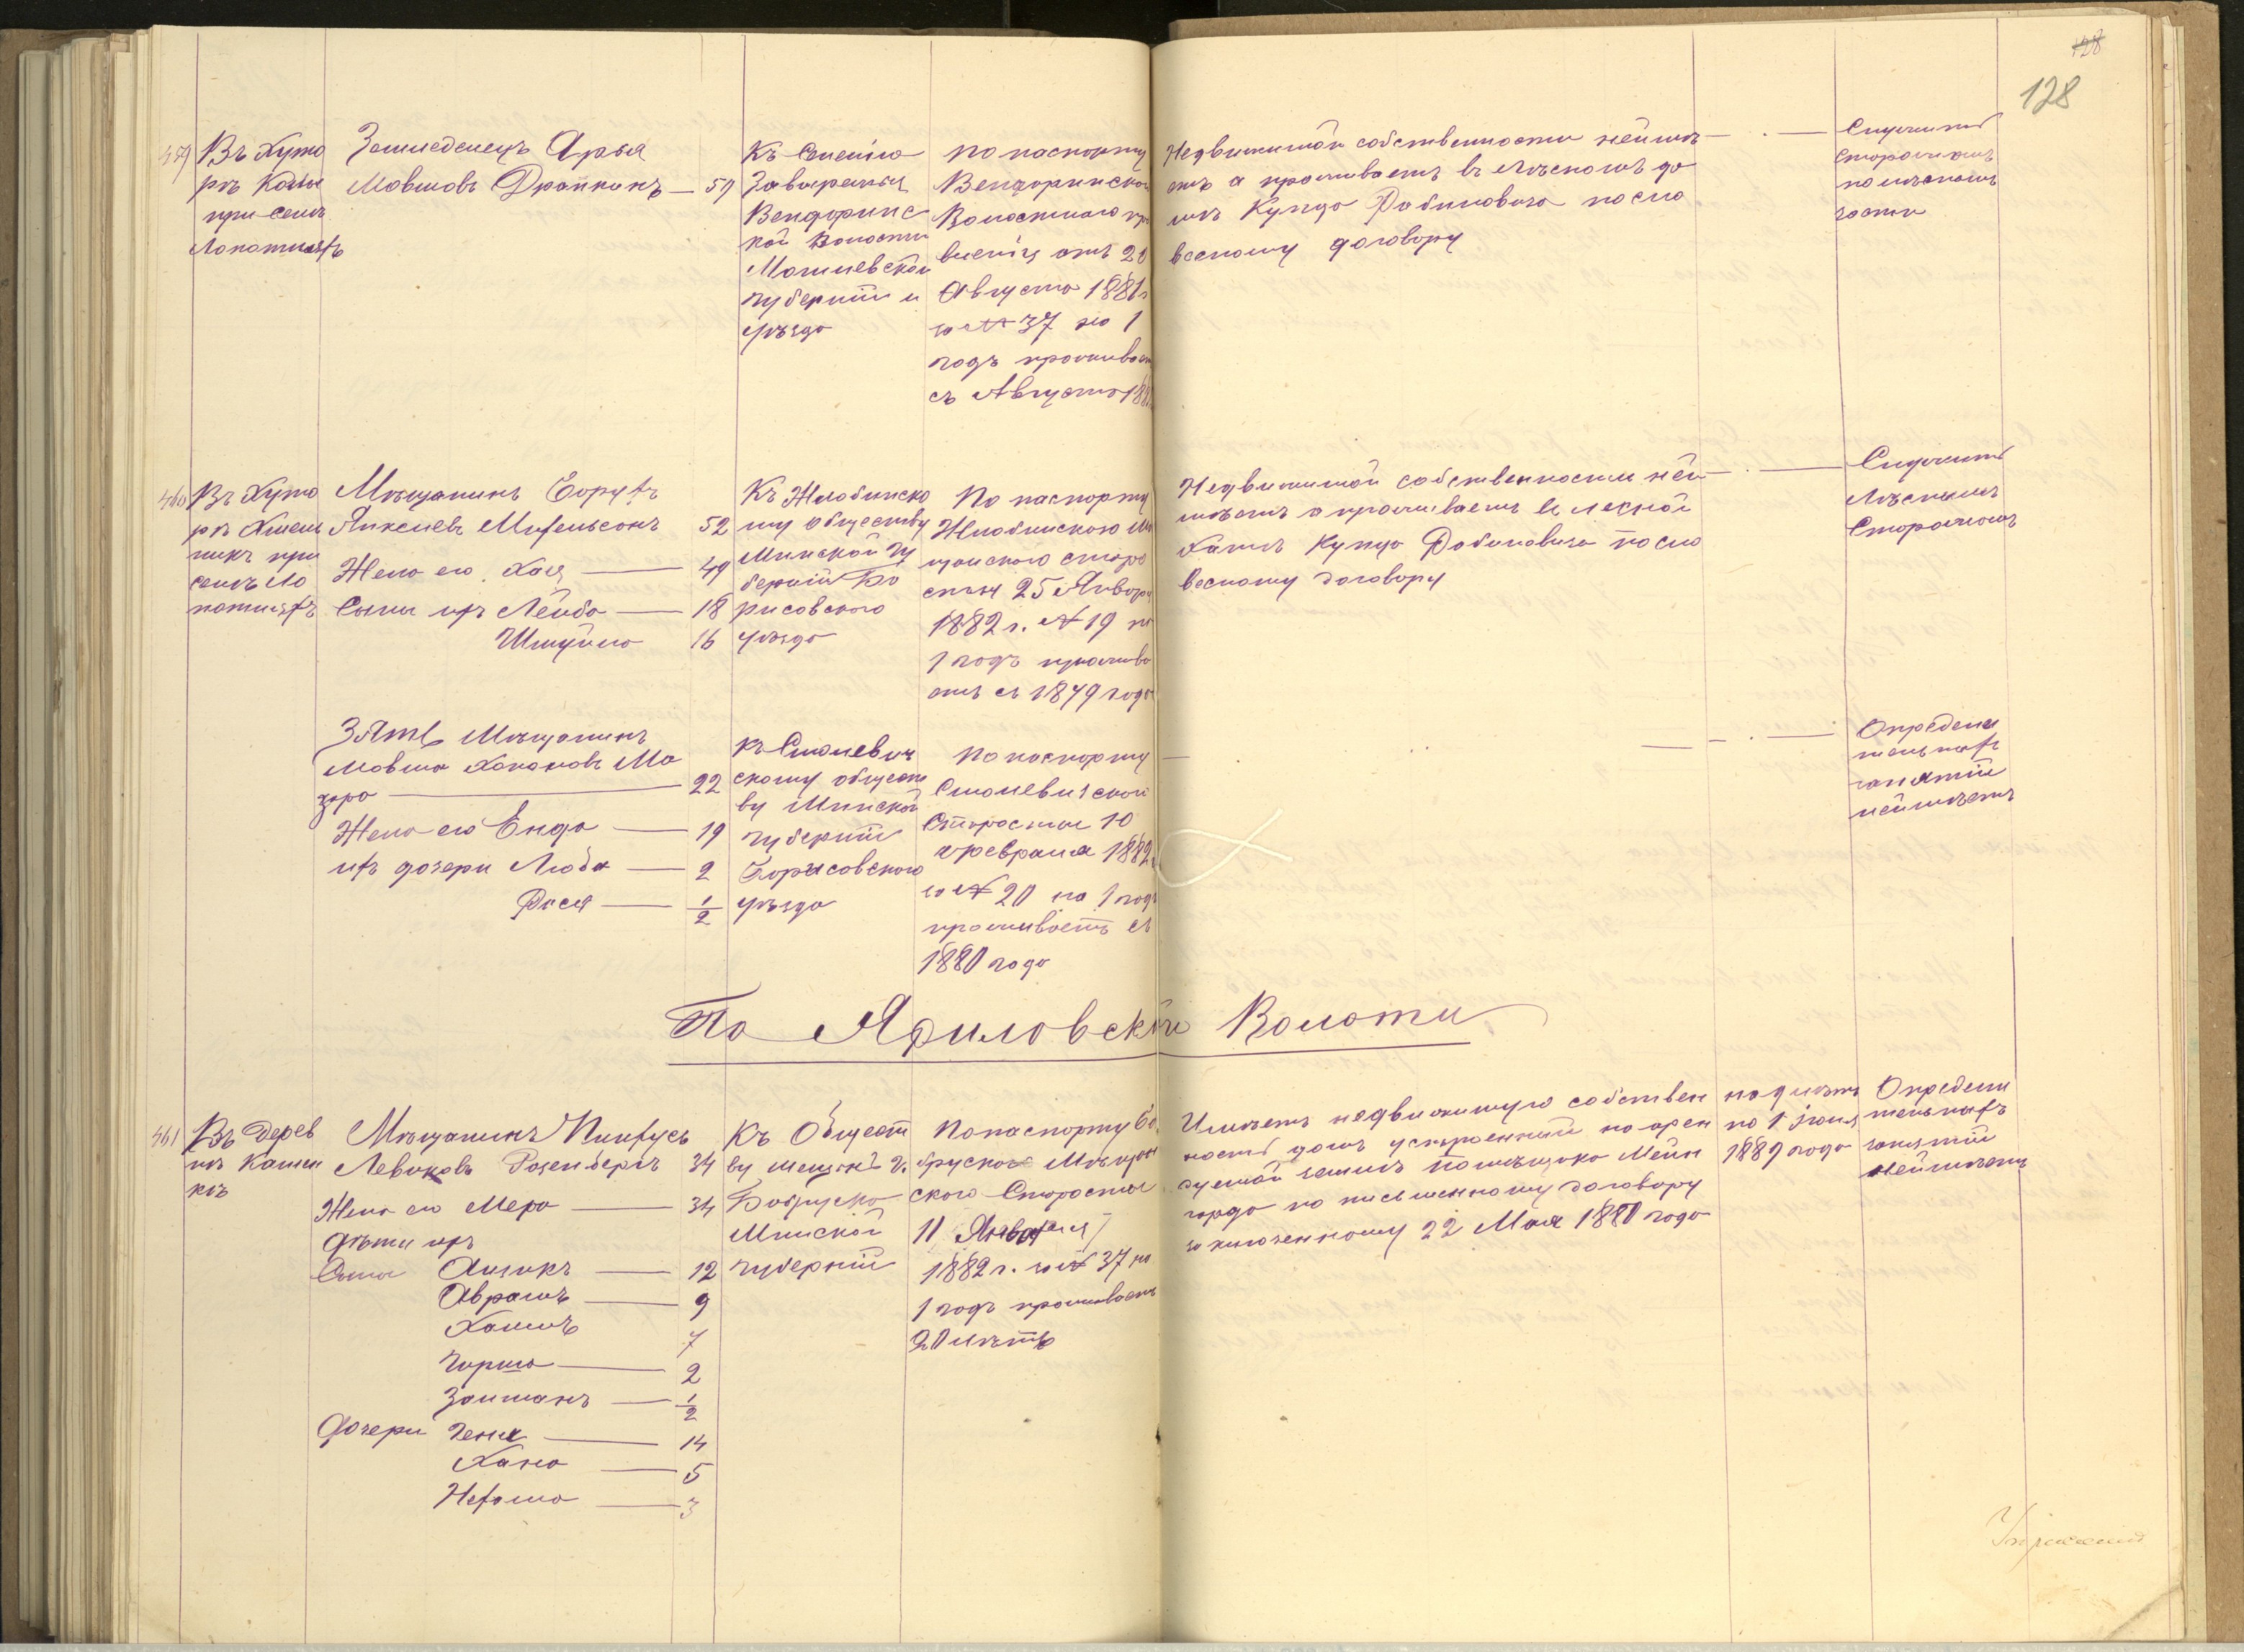 128
128
459
Въ Хуто
рѣ
при селѣ
Лопатняхъ
Земледелецъ Арья
Мовшовъ Драпкинъ — 59
Къ Селенію
Вендоринс
кой Волости
Могилевской
губерніи и
уѣзда
По паспорту
Вендоринска
Волостного пр
вленія отъ 20
Августа 1881 г
за № 37 на 1
годъ проживает
съ Августа 188
Недвижимой собственности неимѣ
етъ а проживаетъ въ лѣсномъ до
мѣ Купца Рабиновича посло
весному договору
Служитъ
Сторожемъ
полѣсной
части
460
Въ Хуто
рѣ
при
селѣ Ло
патняхъ
Мѣщанинъ Борухъ
Янкелевъ Михельсонъ 52
Жена его Хая — 49
Сыны ихъ Лейба — 18
Шмуйла 16
Къ Жлобинско
му обществу
Минской Гу
берніи Бо
рисовского
уѣзда
По паспорту
Жлобинского Мѣ
щанского старо
сты 25 Января
1882 г. № 19 на
1 годъ прожива
етъ съ 1879 года
Недвижимой собственности неи
мѣетъ а проживаетъ въ лесной
Хатѣ Купца Рабиновича посло
весному договору
Служитъ
Лѣснымъ
Сторожемъ
Зять Мѣщанинъ
Мовша Хононовъ Ма
зуро — 22
Жена его Енда — 19
ихъ дочери Люба — 2
Рася — 1/2
Къ Смолевич
скому общест
ву Минской
губерніи
Борисовского
уѣзда
По паспорту
Смолевичской
Старосты 10
Февраля 1882 г
за № 20 на 1 годъ
проживаетъ съ
1880 года
Определи
тельныхъ
занятій
неимѣетъ
По Яриловской Волости
461
Въ Дерев
нѣ Камен
кѣ
Мѣщанинъ Пинхусъ
Левиковъ Розенбергъ 34
Жена его Мера — 34
Дѣти ихъ
Сыны Айзикъ — 12
Аврамъ — 9
Хаимъ 7
Гирша — 2
Залманъ — 1/2
Дочери Геня — 14
Хана — 5
Нехама — 3
Къ Общест
ву мещанъ г.
Бобруска
Минской
губерніи
По паспорту Бо
бруского Мѣщан
ского Старосты
11 Января
1882 г. за № 37 на
1 годъ проживаетъ
20 лѣтъ
Имѣетъ недвижимую собствен
ность домъ устроенный на арен
дуемой землѣ помѣщика Мейн
гарда по письменному договору
заключенному 22 Мая 1880 года
на 9 лѣтъ
по 1 іюня
1889 года
Определи
тельныхъ
занятій
Неимѣетъ